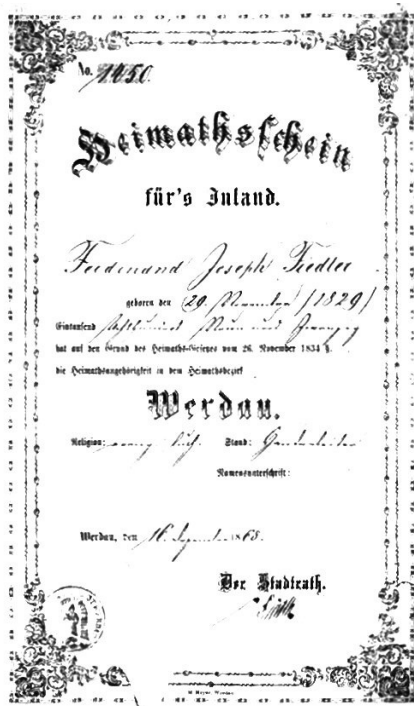 No. 1450.
Heimathsschein
für's Inland.
Ferdinand Joseph Fiedler
geboren den 29. November (1829)
Eintausend Achthundert Neun und Zwanzig
hat auf den Grund des Heimaths-Gesetzes vom 26. November 1834 §.
die Heimathsangehörigkeit in dem Heimathsbezirk
Werdau.
Religion: evang. luth. Stand:
Namensunterschrift:
Werdau, den 16. Dezember 1868.
Der Stadtrath.